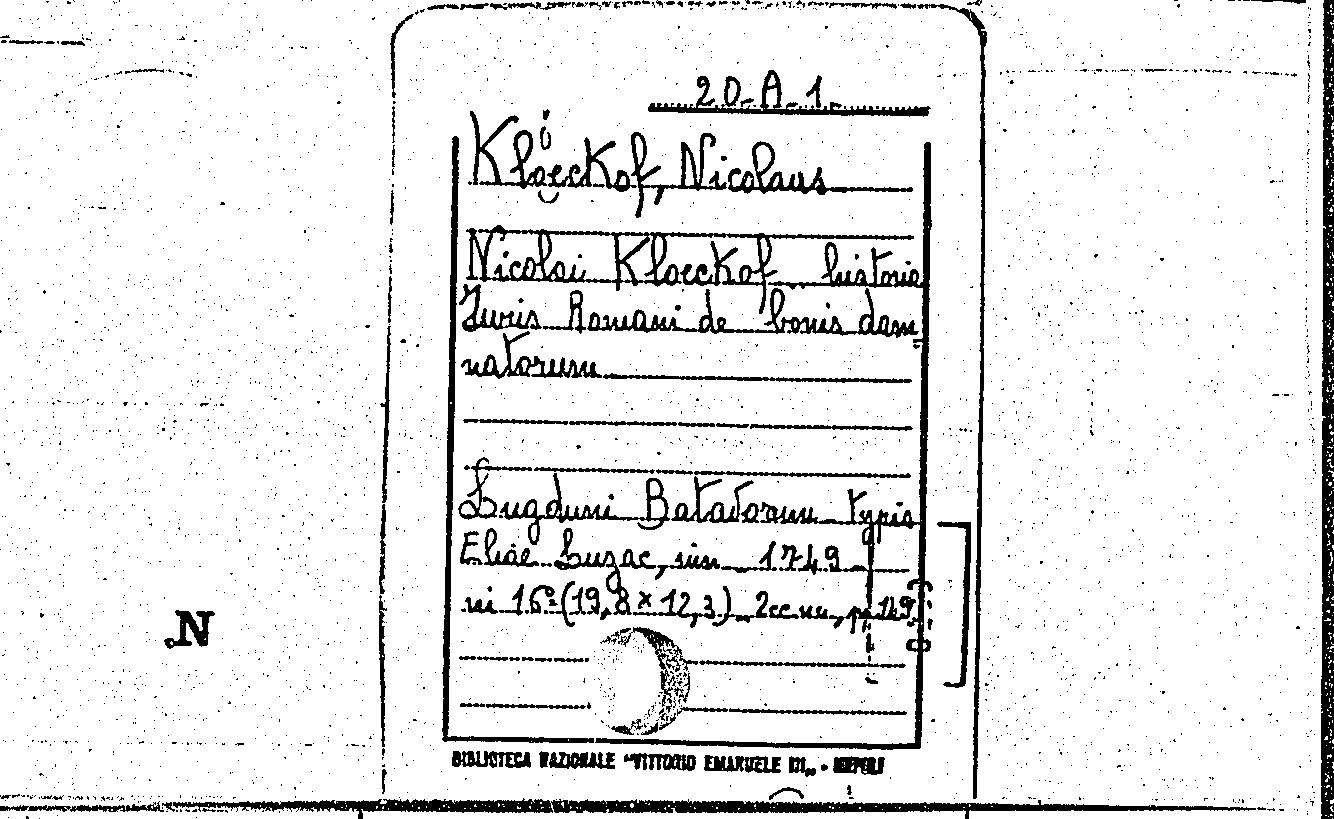 20-A-1-
Kloeckof, Nicolaus
Nicolai Kloeckof historia
Juris Romani de bonis dam
natorum
Lugduni Batavorum typis
Eliae Luzac, iun 1749
in 16º (19,8 x 12,3) 2cc.nn, pp 149
N
BIBLIOTECA NAZIONALE "VITTORIO EMANUELE III„ - NAPOLI